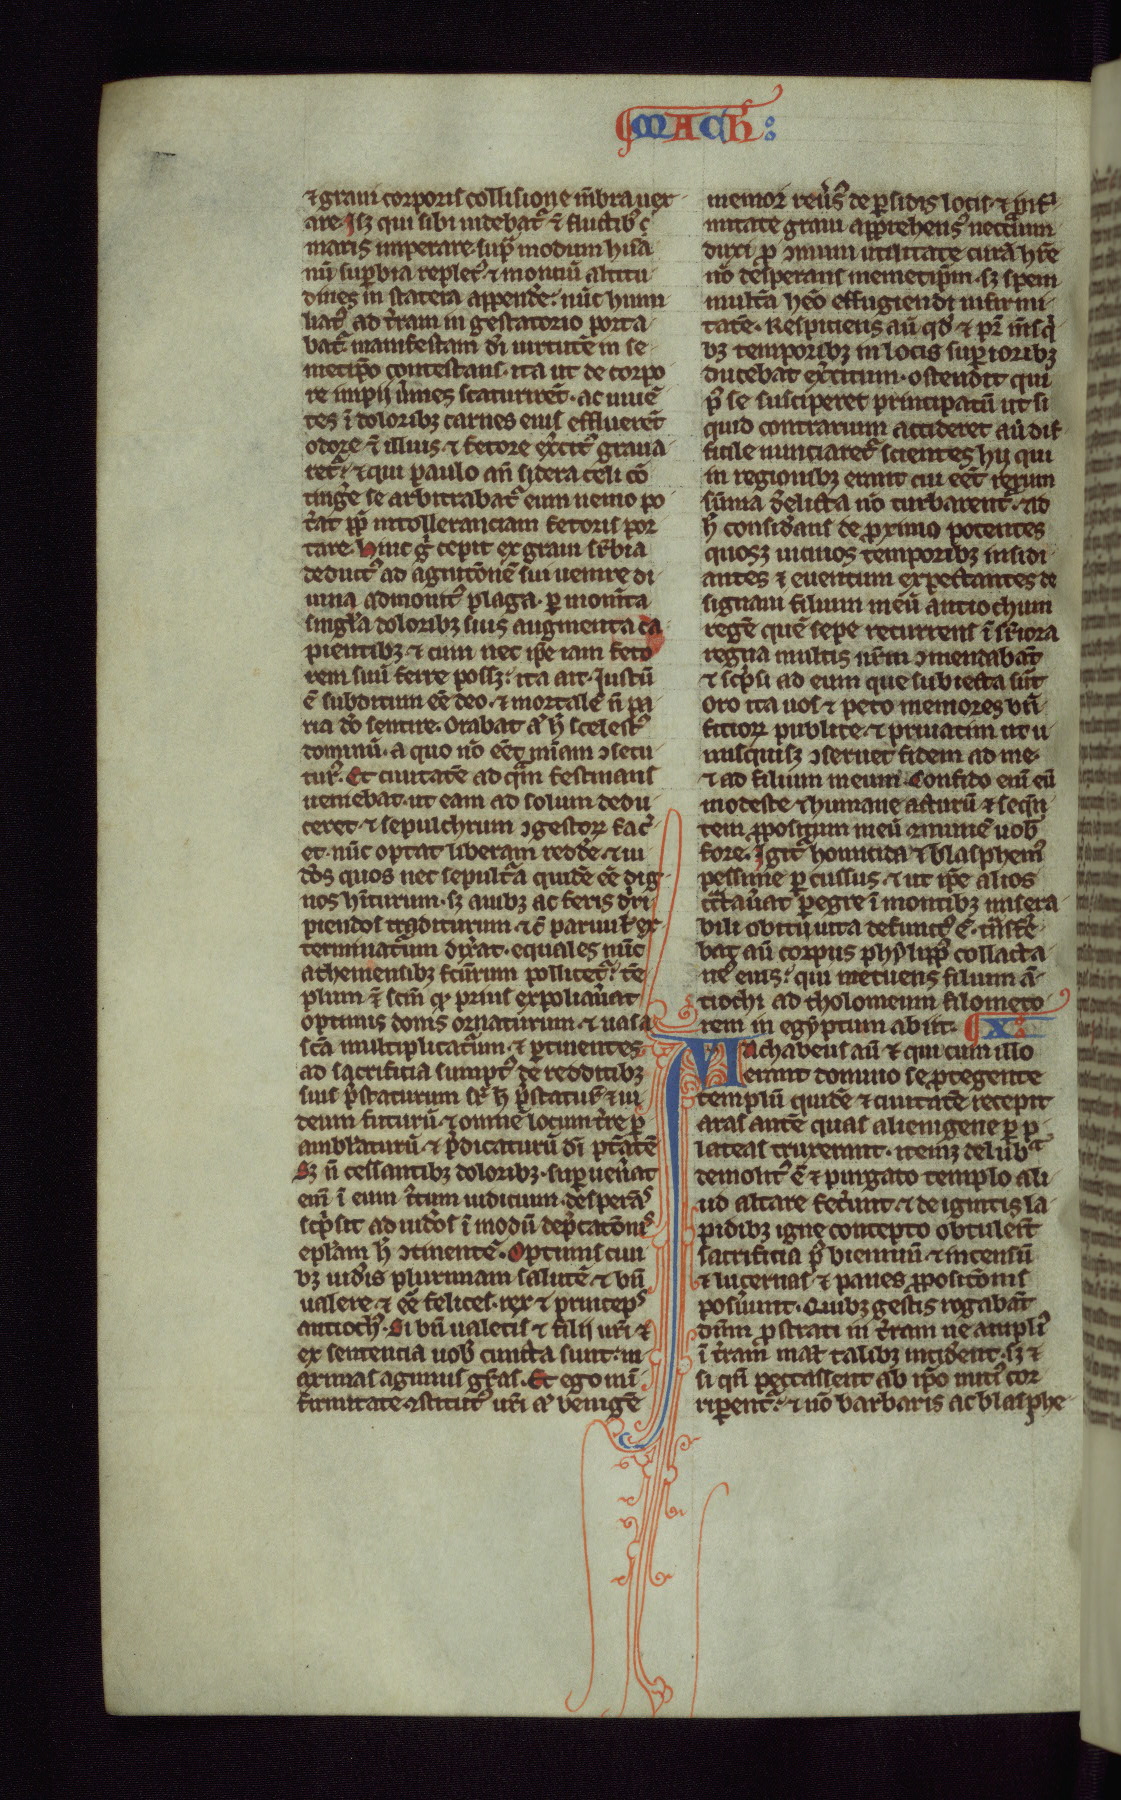 MACh
⁊ graui corporis collisione mēbra uex
are. Isꝫ qui sibi uidebat᷑ ⁊ fluctib᷒ ē
maris imperare. sup̄ modum hūa
nū suꝑbia replet᷒ ⁊ montiū altitu
dines in statera appendẽ. nūc humi
liat᷒ ad t̄ram in gestatorio porta
bat᷑. manifestam dī uirtutē in se
metip̄o contestans. ita ut de corpo
re impij ūmes scaturirēt. ac uiuē
tes ī doloribꝫ carnes eius effluerēt
odore ⁊ illius ⁊ fetore ex̄cit᷒ graua
ret᷑. ⁊ qui paulo an̄ sidera celi cō
tingẽ se arbitrabat᷑ eum nemo po
t̄at ꝓp̄ intolleranciam fetoris por
tare. Hinc ḡ cepit ex graui suꝑbia
deduct᷒ ad agnitōnē sui uenire di
uina admonit᷒ plaga. ꝑ momīta
singl̄a doloribꝫ suis augmenta ca
pientibꝫ ⁊ cum nec ip̄e iam feto
rem suū ferre possꝫ. ita ait. Iustū
ē subditum eē deo. ⁊ mortalē n̄ pa
ria dō sentire. Orabat aͫ h̄ scelest᷒
dominū. a quo nō eēt mīam ↄsecu
tur᷒. Et ciuitatē ad qͣm festinans
ueniebat. ut eam ad solum dedu
ceret ⁊ sepulchrum ↄgestoꝝ fac̄
et. nūc optat liberam reddẽ. ⁊ iu
dōs quos nec sepult̄a quidē eē dig
nos h̄iturum. sꝫ auibꝫ ac feris diri
piendos traditurum. ⁊ c̄ paruul᷒ ex
terminat̄um dix̄at. equales nūc
atheniensibꝫ fc̄urum pollicet᷑. tē
plum ⁊ sc̄m qͥ prius expoliau̇at
optimis donis ornaturum. ⁊ uasa
sc̄a multiplicat̄um. ⁊ ꝑtinentes
ad sacrificia sumpt᷒ de redditibꝫ
suis p̄staturum. suꝑ h̄ p̄statur᷒ ⁊ iu
deum futurū. ⁊ omnē locum t̄re ꝑ
ambl̄aturū. ⁊ p̄dicaturū dī pt̄atē
Sꝫ n̄ cessantibꝫ doloribꝫ. suꝑueṅat
em̄ ī eum i̇tum iudicium. despeṙaˢ
sc̄psit ad iud̄os ī modū dep̄catōniˢ
epl̄am h̄ ↄtinentē. Optimis ciui
bꝫ iud̄is plurimam salutē. ⁊ bn̄
ualere. ⁊ eē felices. rex ⁊ princepˢ
antioch᷒. Si bn̄ ualetis ⁊ filij ur̄i ⁊
ex sentencia uob̄ cuncta sunt. m
aximas agimus gr̄as. Et ego in ī
firmitate ↄstitut᷒ ur̄i aͫ benignē
memor reu̇s᷒ de ꝑsidis locis. ⁊ ī īfi
rmitate graui app̄hens᷒ neccīum
duxi ꝓ ↄmuni utilitate curā hr̄e
nō desperans memetip̄m. sꝫ spem
multā hn̄s effugiendi infirmi
tatē. Respiciens aū qd̄ ⁊ pr̄ m̄s qͥ
bꝫ temporibꝫ in locis superioribꝫ
ducebat ex̄citum. ostendit qui
p̄ se susciperet principatū ut si
quid contrarium accideret au̇ dif
ficile nunciaret᷑ scientes hij qui
in regionibꝫ erant cui eēt rerum
sūma derelicta nō turbarent᷑. ad
h̄ considans de ꝓximo potentes
quosꝫ uicinos temporibꝫ insidi
antes ⁊ euentum expectantes de
signaui filium meū antiochum
regē quē sepe recurrens ī suꝑiora
regna multis ur̄m ↄmendabāt
⁊ sc̄psi ad eum que subiecta sūt
Oro ita uos ⁊ peto memores bn̄
ficioꝝ publice ⁊ priuatim ut u
nusquisꝫ ↄseruet fidem ad me
⁊ ad filium meum. Confido em̄ eū
modeste ⁊ humane acturū ⁊ sequē
tem ꝓpositum meū ↄmunē uob̄
fore. Igit᷑ homicida ⁊ blasphem᷒
pessime ꝑcussus. ⁊ ut ip̄e alios
tc̄tau̇at ꝑegre ī montibꝫ misera
bili obitu uita defunct᷒ ē. tn̄sfe
bat aū corpus phylipp᷒ collacta
ne᷒ eius. qui metuens filium ā
tiochi ad tholomeum filometo
rem in egyptum abiit. X
Machabeus aū ⁊ qui cum illo
erant domino se ꝓtegente
templū quidē ⁊ ciuitatē recepit
aras autē quas alienigene ꝑ p
lateas truxerant. itemꝫ delubͣ
demolit᷒ ē ⁊ purgato templo ali
ud altare fec̄unt. ⁊ de ignitis la
pidibꝫ igne concepto obtulert̄
sacrificia p̄ biennū. ⁊ incensū
⁊ lucernas ⁊ panes ꝓpositōnis
posu̇unt. Quibꝫ gestis rogabāt
dn̄m ꝓstrati in t̄ram ne ampli᷒
ī t̄ram mal᷒ talibꝫ incident. sꝫ ⁊
si qn̄ peccassent ab ip̄o miti᷒ cor
ripent᷑. ⁊ nō barbaris ac blasphe